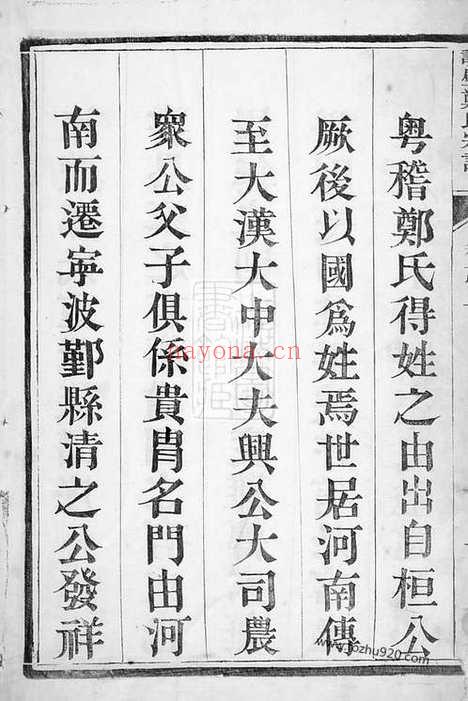 粤稽鄭氏得姓之由出自桓公
厥後以國爲姓焉世居河南傳
至大漢大中大夫興公大司農
衆公父子俱係貴胄名門由河
南而遷寕波鄞縣清之公發祥
nayona.cn
www.fozhu920.com